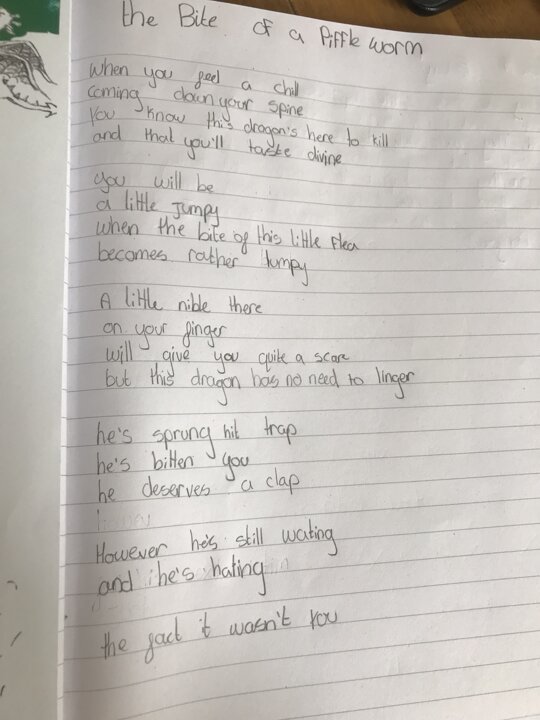 the Bite of a Piffle worm
When you feel a chill
coming down your spine
You know this dragon's here to kill
and that you'll taste divine
you will be
a little Jumpy
when the bite of this little flea
becomes rather lumpy
A little nible there
on your finger
will give you quite a scare
but this dragon has no need to linger
he's sprung hit trap
he's bitten you
he deserves a clap
However he's still wating
and he's hating
the fact it wasn't you